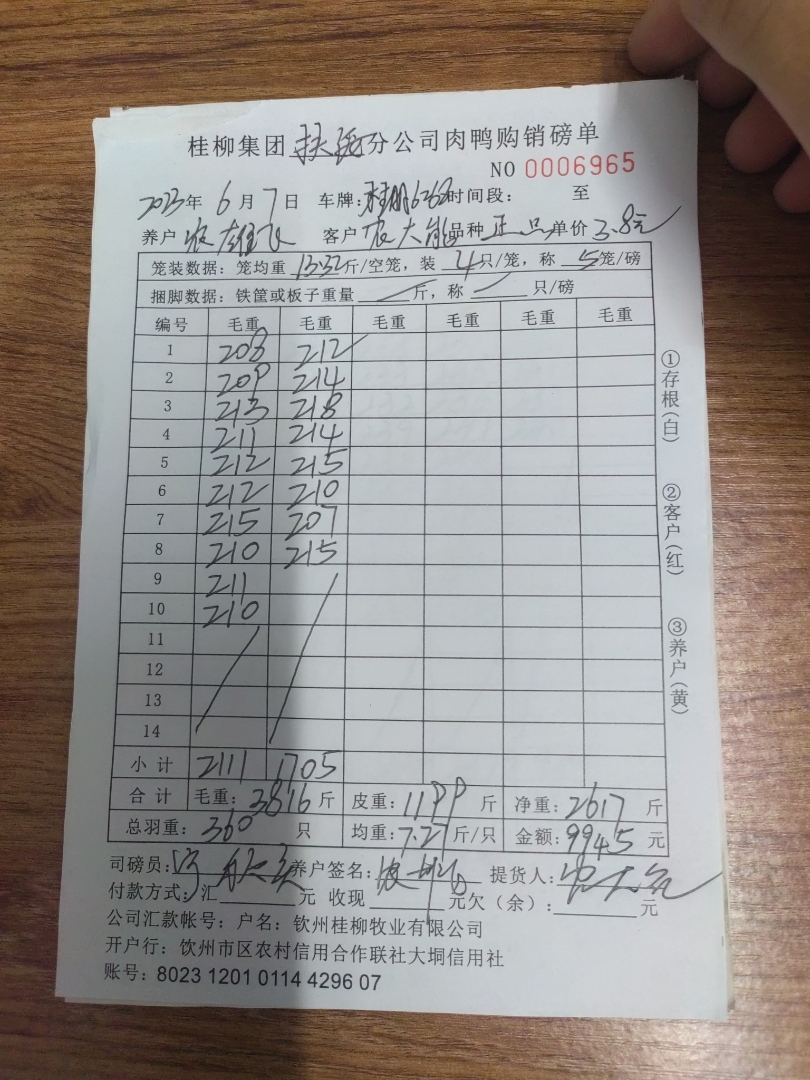 桂柳集团扶绥分公司肉鸭购销磅单
NO 0006965
2023年 6月 7日 车牌: 时间段: 至
养户 农雄飞 客户 农大能 品种 正品 单价 3.8元
笼装数据: 笼均重 13.32斤/空笼, 装 4只/笼, 称 5笼/磅
捆脚数据: 铁筐或板子重量 斤, 称 只/磅
编号 毛重 毛重 毛重 毛重 毛重 毛重
1 208 212
2 209 214
3 213 218
4 211 214
5 212 215
6 212 210
7 215 207
8 210 215
9 211
10 210
11
12
13
14
小计 2111 1705
合计 毛重: 3816 斤 皮重: 1199 斤 净重: 2617 斤
总羽重: 360 只 均重: 7.27斤/只 金额: 9945 元
司磅员: 养户签名: 提货人: 农大能
付款方式: 汇 元 收现 元欠(余): 元
公司汇款帐号: 户名: 钦州桂柳牧业有限公司
开户行: 钦州市区农村信用合作联社大垌信用社
账号: 8023 1201 0114 4296 07
①存根(白)
②客户(红)
③养户(黄)